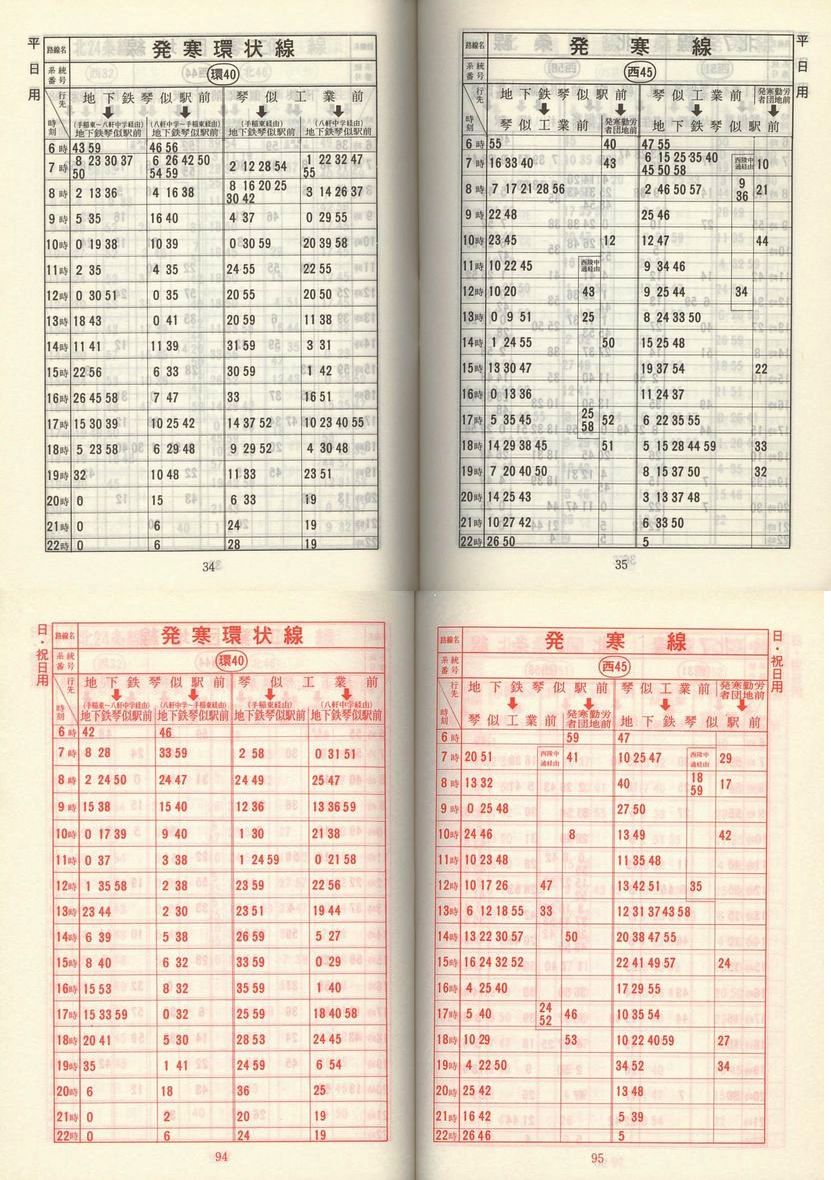 平日用
路線名 発寒環状線
系統番号 環40
行先 時刻 地下鉄琴似駅前 琴似工業前
(手稲東〜八軒中学経由) 地下鉄琴似駅前 (八軒中学〜手稲東経由) 地下鉄琴似駅前 (手稲東経由) 地下鉄琴似駅前 (八軒中学経由) 地下鉄琴似駅前
6時 43 59 46 56
7時 8 23 30 37 50 6 26 42 50 54 59 2 12 28 54 1 22 32 47 55
8時 2 13 36 4 16 38 8 16 20 25 30 42 3 14 26 37
9時 5 35 16 40 4 37 0 29 55
10時 0 19 38 10 39 0 30 59 20 39 58
11時 2 35 4 35 24 55 22 55
12時 0 30 51 0 35 20 55 20 50
13時 18 43 0 41 20 59 11 38
14時 11 41 11 39 31 59 3 31
15時 22 56 6 33 30 59 1 42
16時 26 45 58 7 47 33 16 51
17時 15 30 39 10 25 42 14 37 52 10 23 40 55
18時 5 23 58 6 29 48 9 29 52 4 30 48
19時 32 10 48 11 33 23 51
20時 0 15 6 33 19
21時 0 6 24 19
22時 0 6 28 19
34
平日用
路線名 発寒線
系統番号 西45
行先 時刻 地下鉄琴似駅前 琴似工業前 発寒勤労者団地前
琴似工業前 発寒勤労者団地前 地下鉄琴似駅前
6時 55 40 47 55
7時 16 33 40 43 6 15 25 35 40 45 50 58 西陵中通経由 10
8時 7 17 21 28 56 2 46 50 57 9 36 21
9時 22 48 25 46
10時 23 45 12 12 47 44
11時 10 22 45 西陵中通経由 9 34 46
12時 10 20 43 9 25 44 34
13時 0 9 51 25 8 24 33 50
14時 1 24 55 50 15 25 48
15時 13 30 47 19 37 54 22
16時 0 13 36 11 24 37
17時 5 35 45 25 58 52 6 22 35 55
18時 14 29 38 45 51 5 15 28 44 59 33
19時 7 20 40 50 8 15 37 50 32
20時 14 25 43 3 13 37 48
21時 10 27 42 6 33 50
22時 26 50 5
35
日・祝日用
路線名 発寒環状線
系統番号 環40
行先 時刻 地下鉄琴似駅前 琴似工業前
(手稲東〜八軒中学経由) 地下鉄琴似駅前 (八軒中学〜手稲東経由) 地下鉄琴似駅前 (手稲東経由) 地下鉄琴似駅前 (八軒中学経由) 地下鉄琴似駅前
6時 42 46
7時 8 28 33 59 2 58 0 31 51
8時 2 24 50 24 47 24 49 25 47
9時 15 38 15 40 12 36 13 36 59
10時 0 17 39 9 40 1 30 21 38
11時 0 37 3 38 1 24 59 0 21 58
12時 1 35 58 2 38 23 59 22 56
13時 23 44 2 30 23 51 19 44
14時 6 39 5 38 26 59 5 27
15時 8 40 6 32 33 59 0 29
16時 15 53 8 32 35 59 1 40
17時 15 33 59 0 32 25 59 18 40 58
18時 20 41 5 30 28 53 24 45
19時 35 1 41 24 59 6 54
20時 6 18 36 25
21時 0 2 20 19
22時 0 6 24 19
94
日・祝日用
路線名 発寒線
系統番号 西45
行先 時刻 地下鉄琴似駅前 琴似工業前 発寒勤労者団地前
琴似工業前 発寒勤労者団地前 地下鉄琴似駅前
6時 59 47
7時 20 51 西陵中通経由 41 10 25 47 西陵中通経由 29
8時 13 32 40 18 59 17
9時 0 25 48 27 50
10時 24 46 8 13 49 42
11時 10 23 48 11 35 48
12時 10 17 26 47 13 42 51 35
13時 6 12 18 55 33 12 31 37 43 58
14時 13 22 30 57 50 20 38 47 55
15時 16 24 32 52 22 41 49 57 24
16時 4 25 40 17 29 55
17時 5 40 24 52 46 10 35 54
18時 10 29 53 10 22 40 59 27
19時 4 22 50 34 52 34
20時 25 42 13 48
21時 16 42 5 39
22時 26 46 5
95